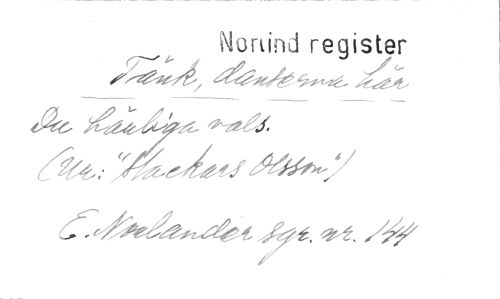 Norlind register
Tänk, danserna här
Du härliga vals.
(Ur: "Stackars Olsson")
E. Norlander sgr. nr. 144